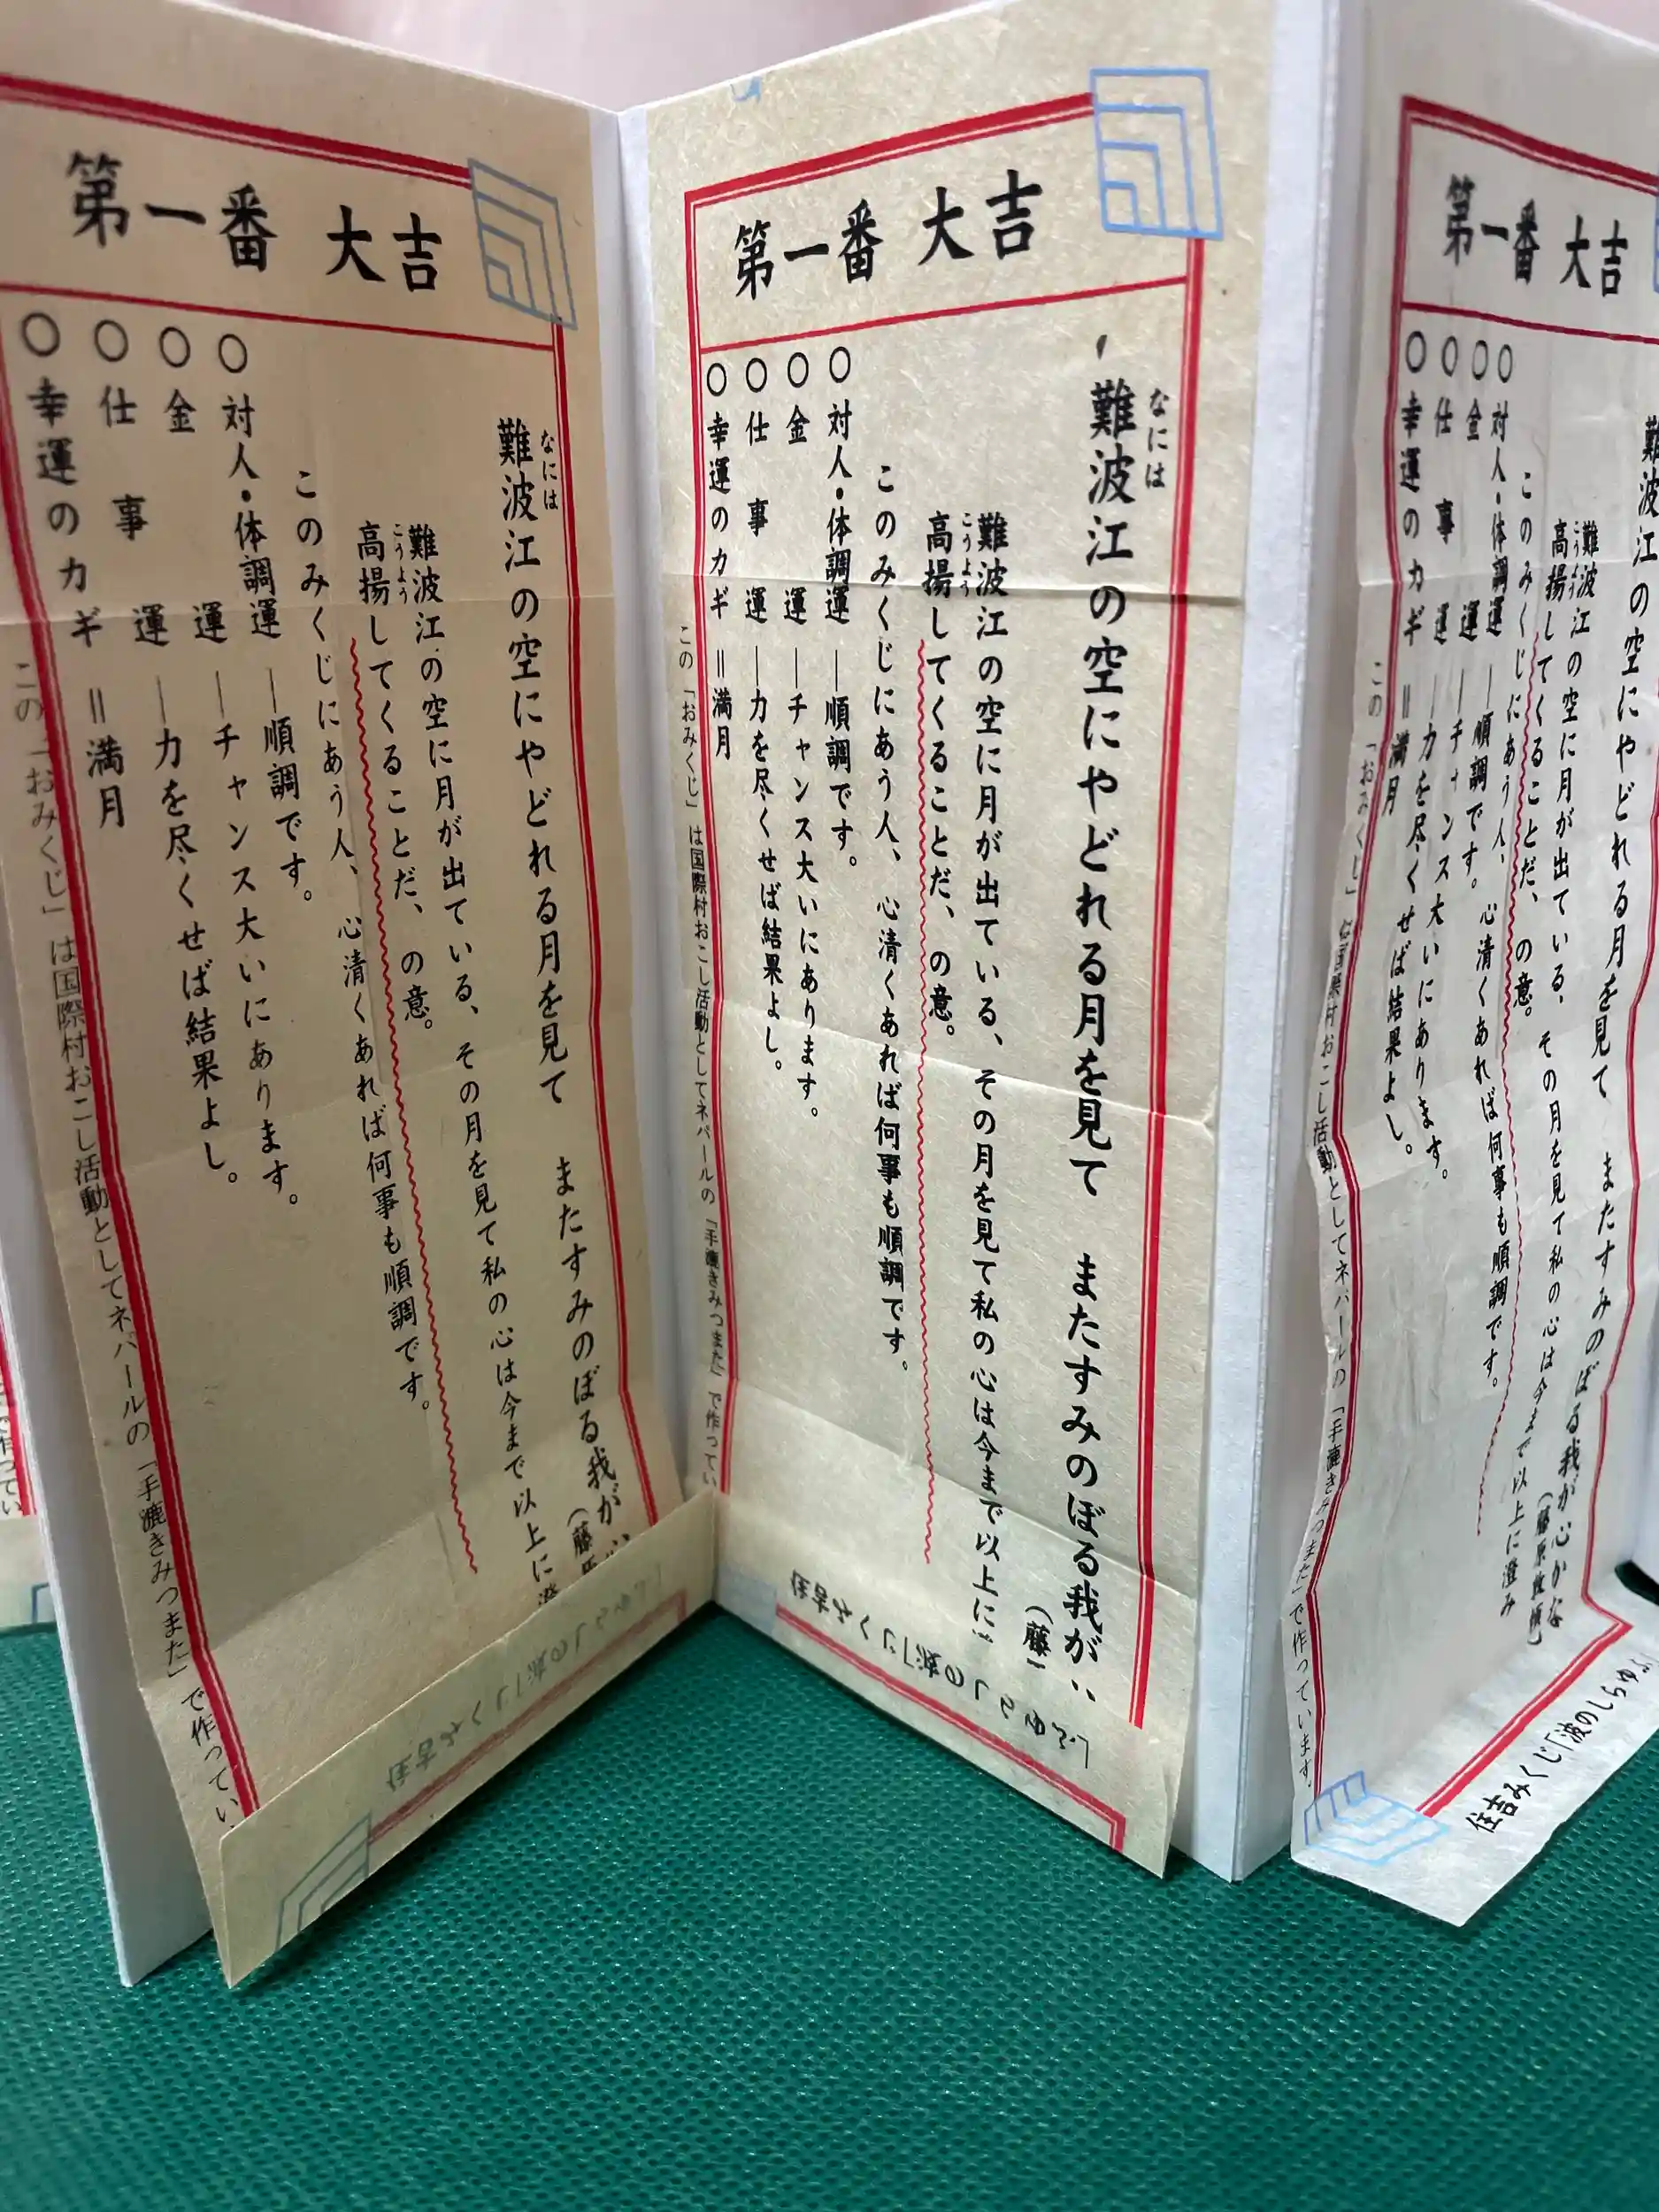 第一番 大吉
なには
難波江の空にやどれる月を見て またすみのぼる我が
(藤原
難波江の空に月が出ている、その月を見て私の心は今まで以上に
こうよう
高揚してくることだ、の意。
このみくじにあう人、心清くあれば何事も順調です。
○対人・体調運―順調です。
○金運―チャンス大いにあります。
○仕事運―力を尽くせば結果よし。
○幸運のカギ=満月
この「おみくじ」は国際村おこし活動としてネパールの「手漉きみつまた」で作ってい
住吉みくじ「波のしらゆふ
第一番 大吉
なには
難波江の空にやどれる月を見て またすみのぼる我が
(藤
難波江の空に月が出ている、その月を見て私の心は今まで以上に
こうよう
高揚してくることだ、の意。
このみくじにあう人、心清くあれば何事も順調です。
○対人・体調運―順調です。
○金運―チャンス大いにあります。
○仕事運―力を尽くせば結果よし。
○幸運のカギ=満月
この「おみくじ」は国際村おこし活動としてネパールの「手漉きみつまた」で作ってい
住吉みくじ「波のしらゆふ」
第一番 大吉
難波江の空にやどれる月を見て またすみのぼる我が心かな
難波江の空に月が出ている、その月を見て私の心は今まで以上に澄み
こうよう
高揚してくることだ、の意。
このみくじにあう人、心清くあれば何事も順調です。
○対人・体調運―順調です。
○金運―チャンス大いにあります。
○仕事運―力を尽くせば結果よし。
○幸運のカギ=満月
この「おみくじ」は国際村おこし活動としてネパールの「手漉きみつまた」で作っています。
住吉みくじ「波のしらゆふ